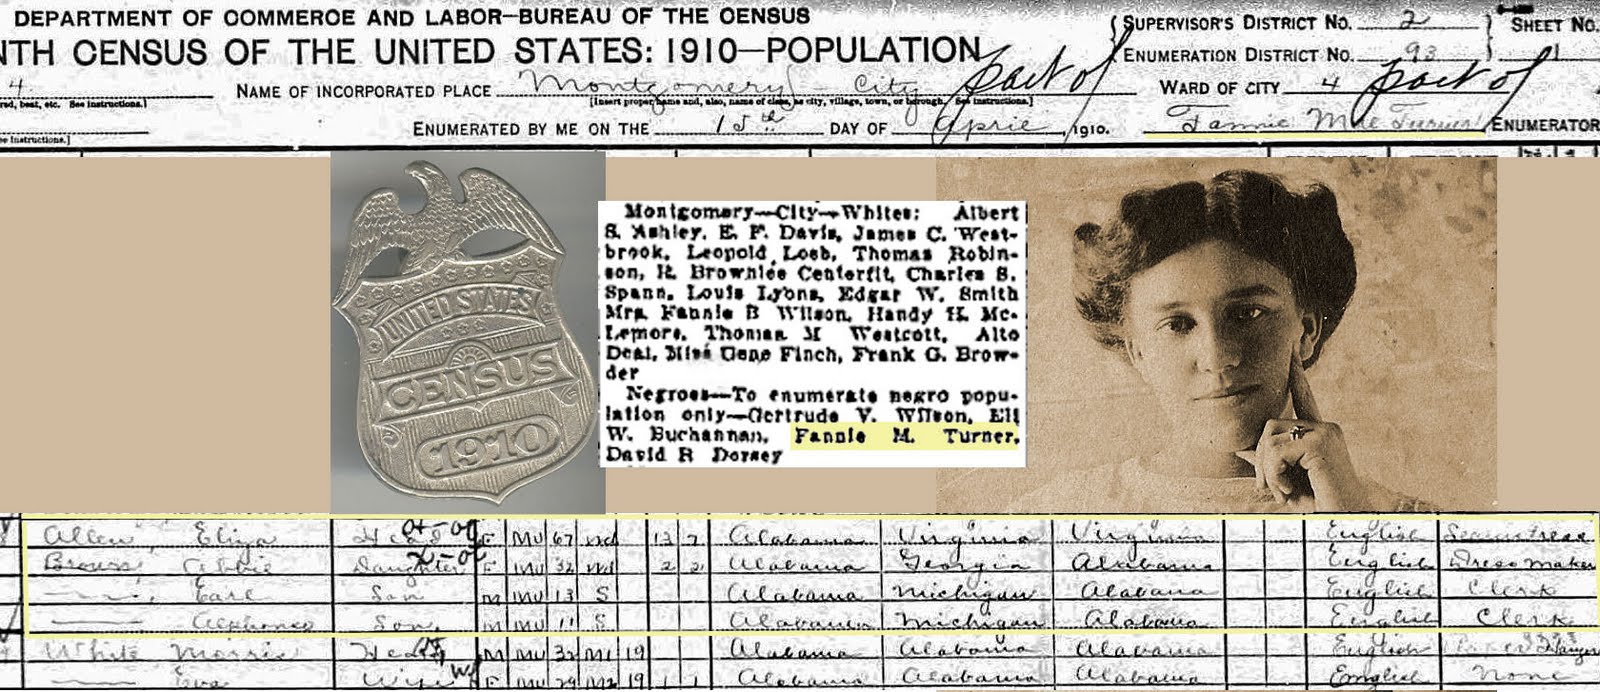 DEPARTMENT OF COMMERCE AND LABOR—BUREAU OF THE CENSUS
NTH CENSUS OF THE UNITED STATES: 1910—POPULATION
SUPERVISOR'S DISTRICT NO. 2 SHEET NO.
ENUMERATION DISTRICT NO. 93
4 NAME OF INCORPORATED PLACE Montgomery City part of WARD OF CITY 4 part of
[Insert proper name and, also, name of class, as city, village, town, or borough. See instructions.]
See instructions.]
ENUMERATED BY ME ON THE 15th DAY OF April, 1910. Fannie Mae Turner ENUMERATOR
UNITED STATES
CENSUS
1910
Montgomery—City—Whites: Albert
S. Ashley, E. F. Davis, James C. West-
brook, Leopold Loeb, Thomas Robin-
son, R. Brownlee Centerfit, Charles S.
Spann, Louis Lyons, Edgar W. Smith
Mrs Fannie B Wilson, Handy H. Mc-
Lemore, Thomas M Westcott, Alto
Deal, Miss Gene Finch, Frank G. Brow-
der
Negroes—To enumerate negro popu-
lation only—Gertrude V. Wilson, Eli
W. Buchannan, Fannie M. Turner,
David R Dorsey
Allen Eliza Head F Mu 67 Wd 13 7 Alabama Virginia Virginia English Seamstress
Abbie Daughter F Mu 32 Wd 2 2 Alabama Georgia Alabama English Dress maker
Earl Son M Mu 13 S Alabama Michigan Alabama English Clerk
Alphonso Son M Mu 11 S Alabama Michigan Alabama English Clerk
White Morris Head M Mu 32 M1 19 Alabama Alabama Alabama English
Eva Wife F Mu 29 19 1 1 Alabama Alabama Alabama English None